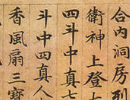 合內洞房列
衛神上登上
四斗中四真
斗中四真八
香風扇三寶